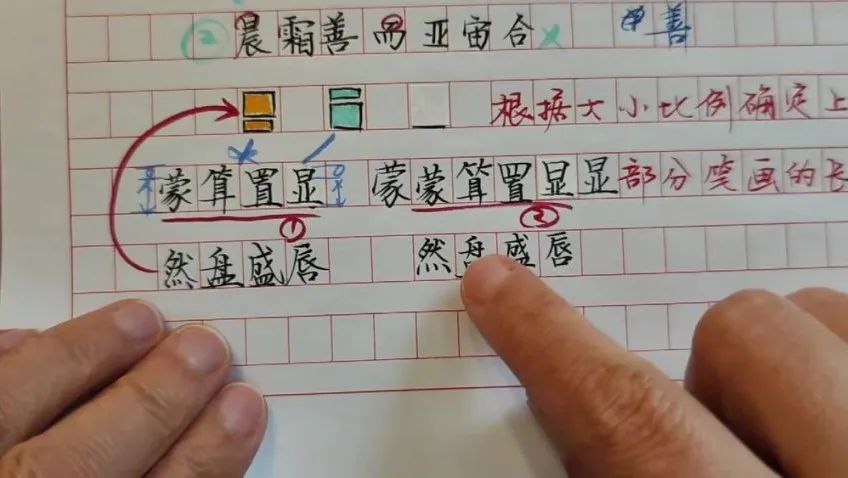 ② 晨霜善而亚宙合 × 中善
根据大小比例确定上
蒙算置显 蒙蒙算置显显部分笑画的长
① ③
然盘盛唇 然盘盛唇